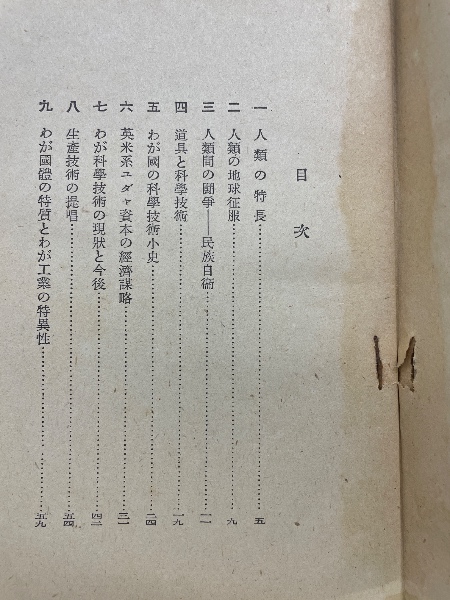 目次
一 人類の特長…………五
二 人類の地球征服…………九
三 人類間の鬪爭——民族自衞…………一一
四 道具と科學技術…………一九
五 わが國の科學技術小史…………二四
六 英米系ユダヤ資本の經濟謀略…………三一
七 わが科學技術の現狀と今後…………四二
八 生產技術の提唱…………五四
九 わが國體の特質とわが工業の特異性…………五九